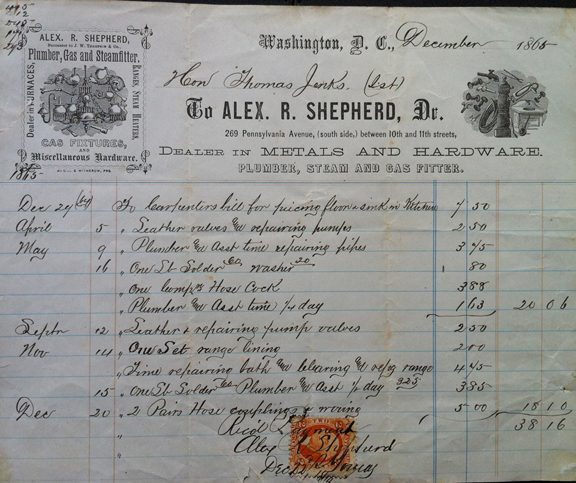 ALEX. R. SHEPHERD,
Successor to J. W. Thompson & Co.,
Plumber, Gas and Steamfitter.
Dealer in FURNACES,
RANGES, STEAM HEATERS,
GAS FIXTURES,
AND
Miscellaneous Hardware.
Washington, D. C., December 1865
Hon Thomas Jenks. (Est)
To ALEX. R. SHEPHERD, Dr.
269 Pennsylvania Avenue, (south side,) between 10th and 11th streets,
DEALER IN METALS AND HARDWARE.
PLUMBER, STEAM AND GAS FITTER.
1865
Dec 29 (64) To Carpenters bill for piecing floor & sink in Kitchen 7 50
April 5 " Leather valves & repairing pumps 2 50
May 9 " Plumber & Asst time repairing pipes 3 75
16 " One Lb Solder 60, washer 20 80
" One Hose Cock 3 88
" Plumber & Asst time 1/4 day 1 63 20 06
Septr 12 " Leather & repairing pump valves 2 50
Nov 14 " One Set range lining 2 00
" Time repairing bath & clearing & repg range 4 75
15 " One Lb Solder 60 Plumber & Asst 1/2 day 3 25 3 85
Dec 20 " 2 Pairs Hose couplings & wiring 5 00 18 10
" Recd Payment 38 16
" Alex R Shepherd